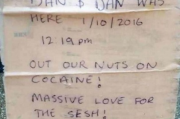 DAN & DAN WAS
HERE 1/10/2016
12:19pm
OUT OUR NUTS ON
COCAINE!
MASSIVE LOVE FOR
THE SESH!